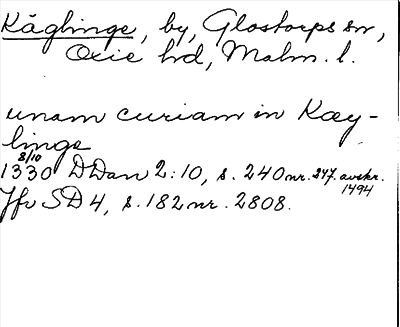 Käglinge, by, Glostorps sn,
Oxie hd, Malm. l.
unam curiam in Kæy-
linge
8/10
1330 DDan 2:10, s. 240 nr. 247. avskr.
1494
Jfr SD 4, s. 182 nr. 2808.